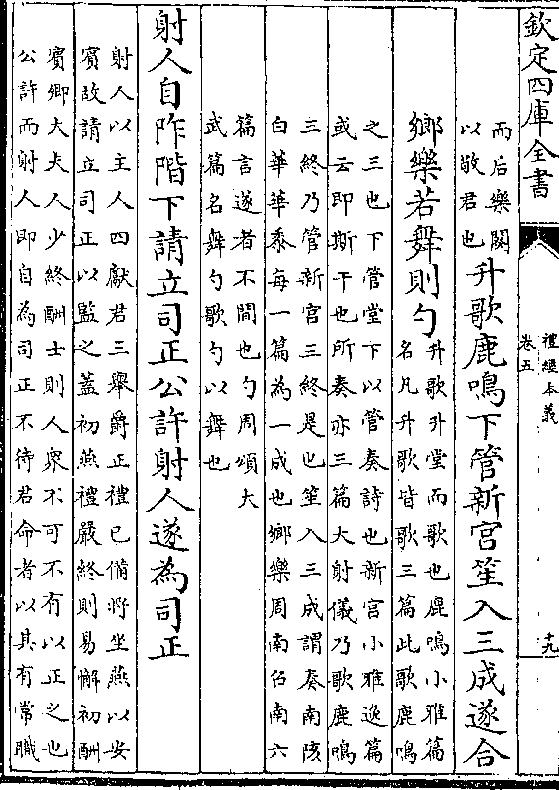 欽定四庫全書
禮經本義
卷五
十九
而后樂闋
以敬君也
升歌鹿鳴下管新宮笙入三成遂合
鄉樂若舞則勺
升歌升堂而歌也鹿鳴小雅篇
名凡升歌皆歌三篇此歌鹿鳴
之三也下管堂下以管奏詩也新宮小雅逸篇
或云即斯干也所奏亦三篇大射儀乃歌鹿鳴
三終乃管新宮三終是也笙入三成謂奏南陔
白華華黍每一篇為一成也鄉樂周南召南六
篇言遂者不間也勺周頌大
武篇名舞勺歌勺以舞也
射人自阼階下請立司正公許射人遂為司正
射人以主人四獻君三舉爵正禮已備將坐燕以安
賓故請立司正以監之蓋初燕禮嚴終則易懈初酬
賓卿大夫人少終酬士則人衆不可不有以正之也
公許而射人即自為司正不待君命者以其有常職